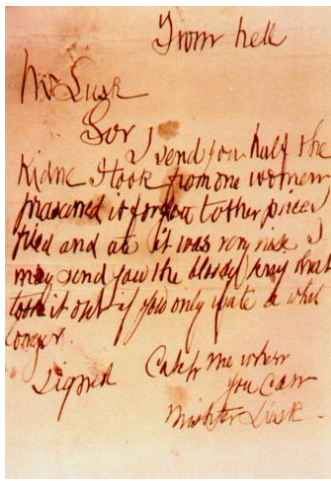 From hell
Mr Lusk
Sor
I send you half the
Kidne I took from one women
prasarved it for you tother piece I
fried and ate it was very nise I
may send you the bloody knif that
took it out if you only wate a whil
longer.
signed
Catch me when
you can
Mishter Lusk.